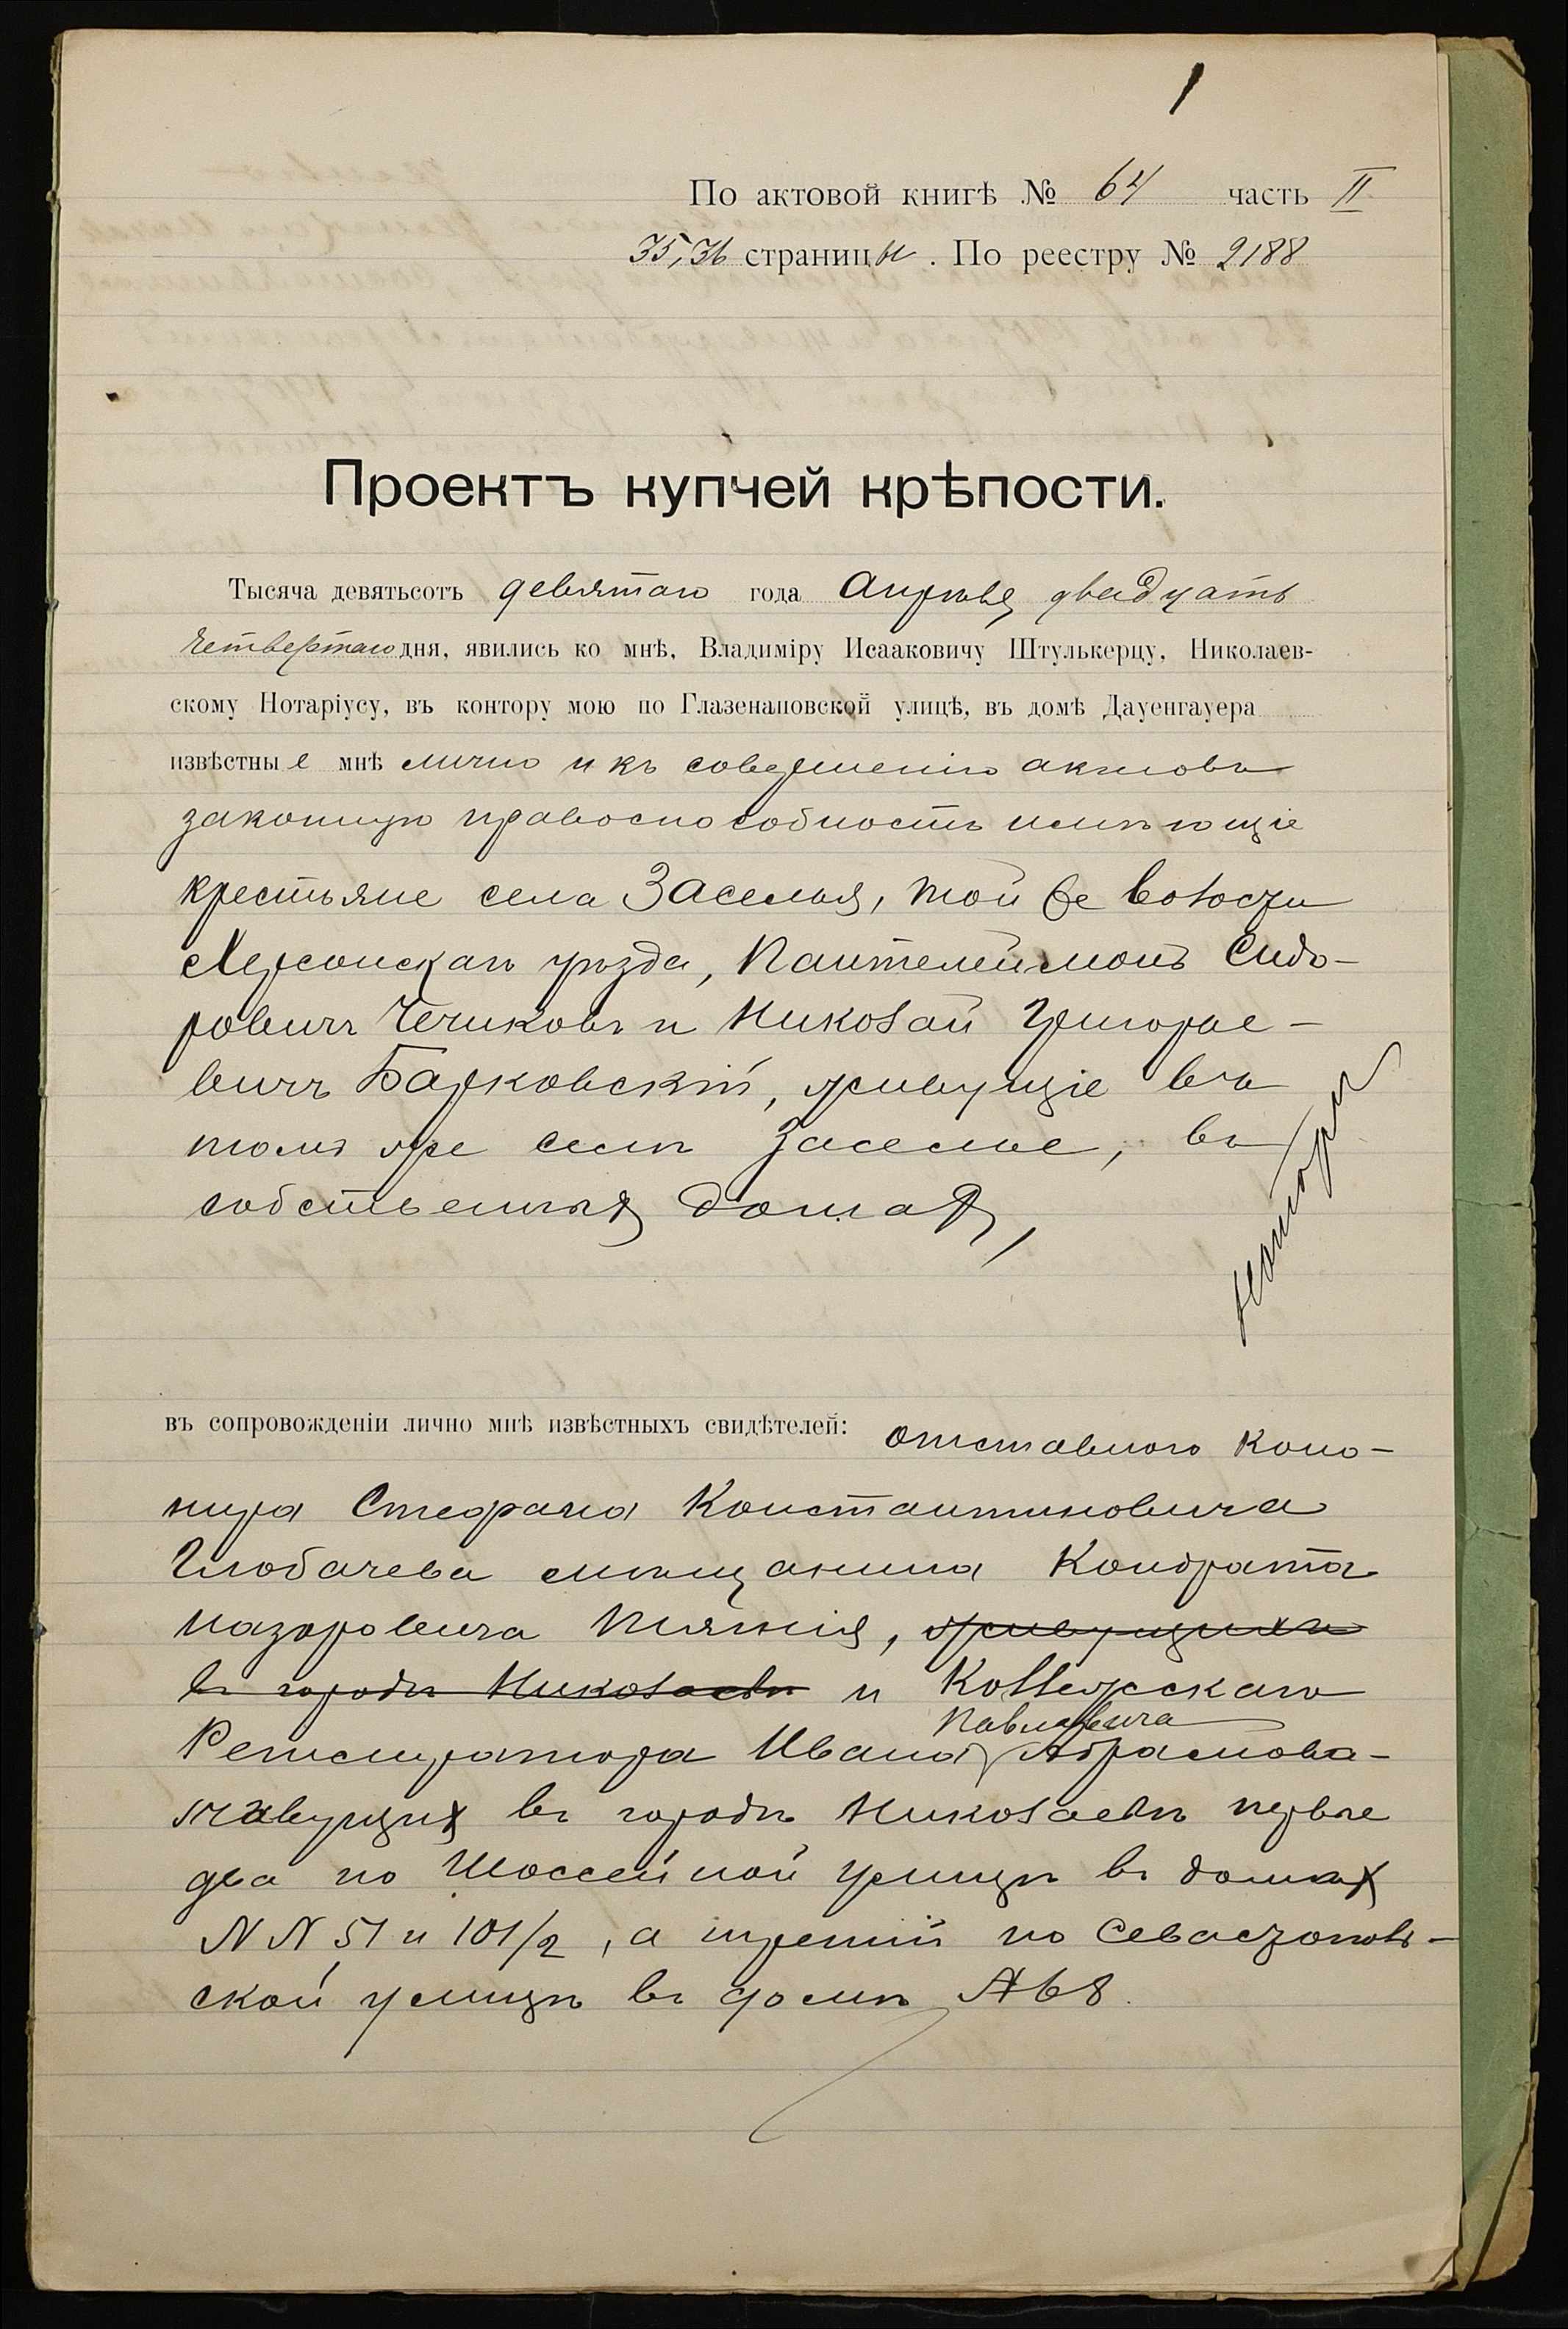 1
По актовой книгѣ № 64 часть II
35, 36 страницы. По реестру № 2188
Проектъ купчей крѣпости.
Тысяча девятьсотъ девятаго года Апрѣля двадцать
четвертаго дня, явились ко мнѣ, Владиміру Исааковичу Штулькерцу, Николаев-
скому Нотаріусу, въ контору мою по Глазенаповской улицѣ, въ домѣ Дауенгауера
извѣстные мнѣ лично и къ совершенію актовъ
законную правоспособность имѣющіе
крестьяне села Заселья, той же волости
Херсонскаго уѣзда, Пантелеймонъ Сидо-
ровичъ Чечиковъ и Николай Григорье-
вичъ Барковскій, живущіе въ
томъ же селѣ Заселье, въ
собственныхъ домахъ,
въ сопровожденіи лично мнѣ извѣстныхъ свидѣтелей: отставного коно-
нира Стефана Константиновича
Глобачева мѣщанина Кондрата
Назаровича, живущихъ
въ городѣ Николаевѣ и Коллежскаго
Павловича
Регистратора Ивана Абрамова-
живущихъ въ городѣ Николаевѣ первые
два по Шоссейной улицѣ въ домахъ
NN 51 и 101/2, а третій по Севастополь-
ской улицѣ въ домѣ № 68.